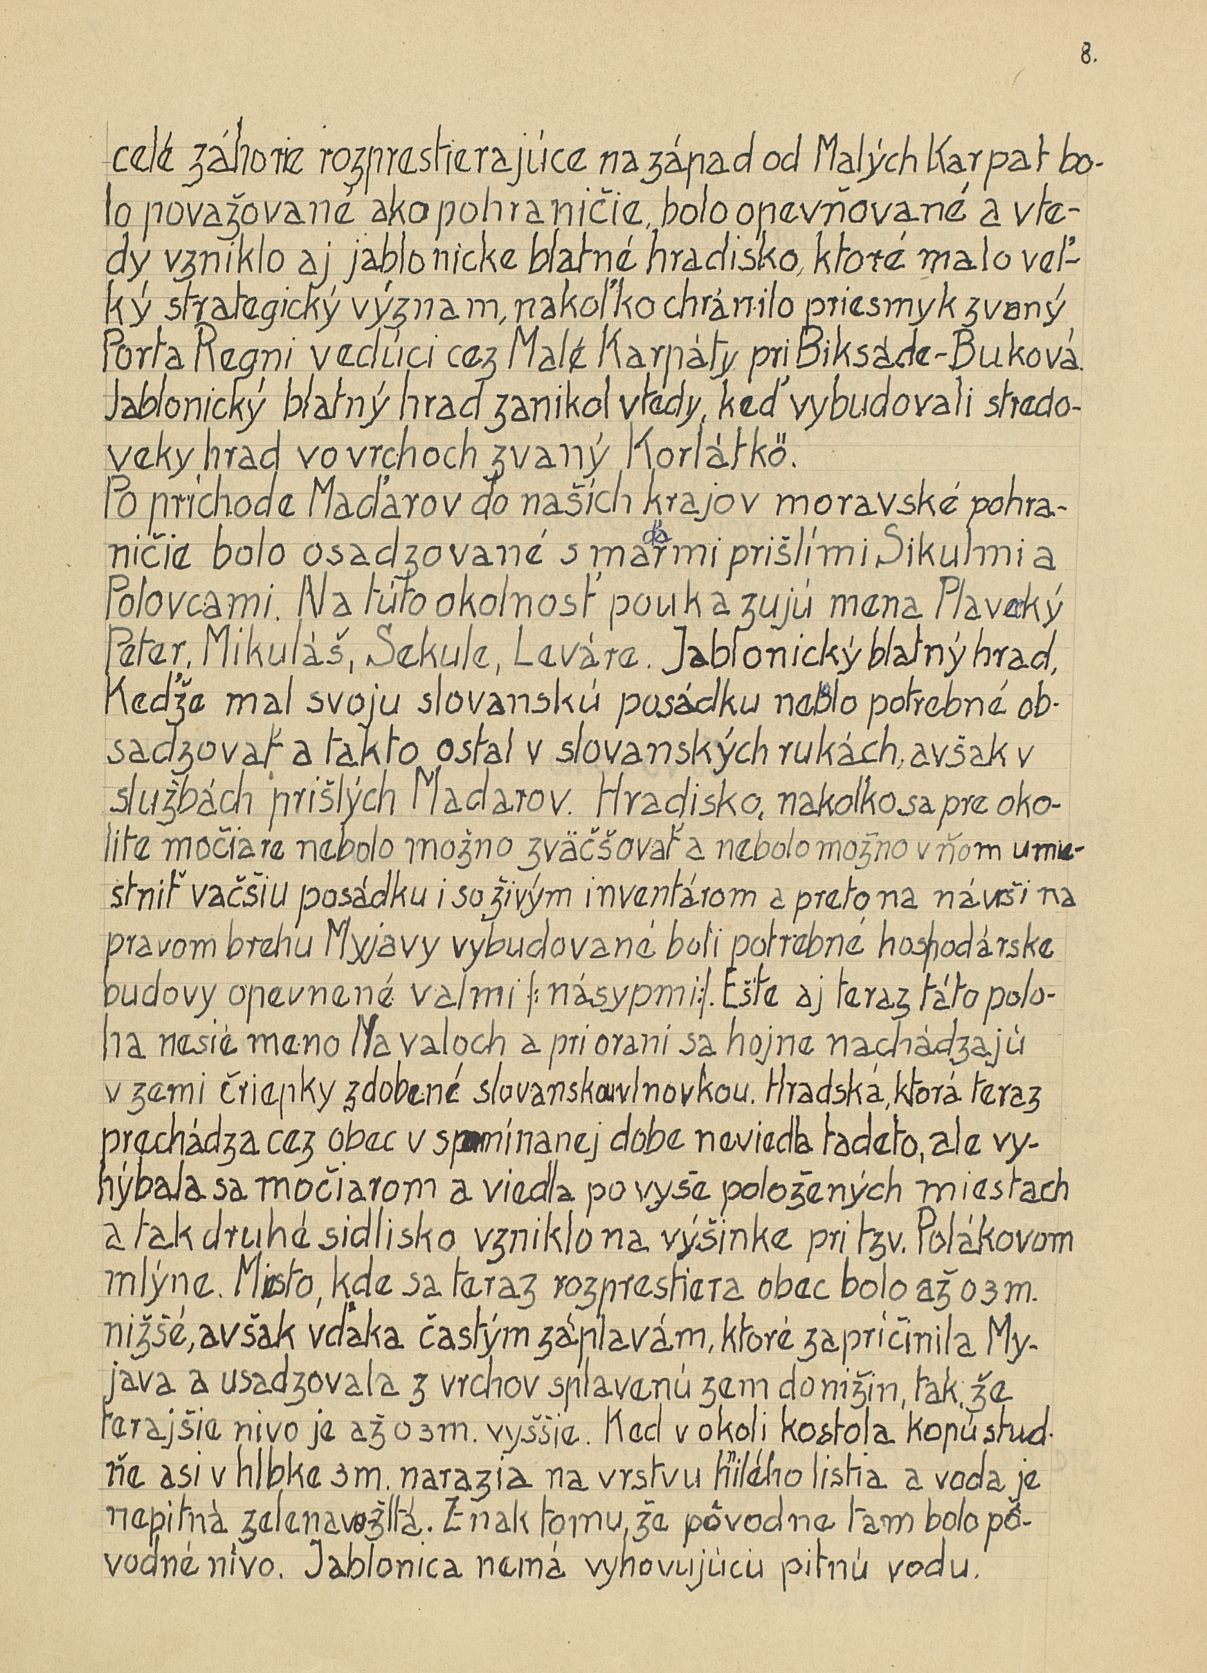 8.
celé záhorie rozprestierajúce na západ od Malých Karpat bo-
lo považované ako pohraničie, bolo opevňované a vte-
dy vzniklo aj jablonicke blatné hradisko, ktoré malo veľ-
ký strategický význam, nakoľko chránilo priesmyk zvaný
Porta Regni vedúci cez Malé Karpáty pri Biksáde-Buková.
Jablonický blatný hrad zanikol vtedy, keď vybudovali stredo-
veky hrad vo vrchoch zvaný Korlátkö.
Po príchode Maďarov do našich krajov moravské pohra-
ničie bolo osadzované s maďarmi prišlími Sikulmi a
Polovcami. Na túto okolnosť poukazujú mena Plavecký
Peter, Mikuláš, Sekule, Leváre. Jablonický blatný hrad,
Keďže mal svoju slovanskú posádku nebolo potrebné ob-
sadzovať a takto ostal v slovanských rukách, avšak v
službách prišlých Madarov. Hradisko, nakoľko sa pre oko-
lite močiare nebolo možno zväčšovať a nebolo možno v ňom umie-
stniť vačšiu posádku i so živým inventárom a preto na návrši na
pravom brehu Myjavy vybudované boli potrebné hospodárske
budovy opevnené valmi /: násypmi:/. Ešte aj teraz táto polo-
ha nesie meno Na valoch a pri oraní sa hojne nachádzajú
v zemi čriepky zdobené slovanskou vlnovkou. Hradská, ktorá teraz
prechádza cez obec v spomínanej dobe neviedla tadeto, ale vy-
hýbala sa močiarom a viedla po vyše položených miestach
a tak druhé sidlisko vzniklo na výšinke pri tzv. Polákovom
mlýne. Miesto, kde sa teraz rozprestiera obec bolo až o 3 m.
nižšé, avšak vďaka častým záplavám, ktoré zapríčinila My-
java a usadzovala z vrchov splavenú zem do nižin, tak, že
terajšie nivo je až o 3 m. vyššie. Ked v okoli kostola kopú stud-
ňe asi v hlbke 3 m. narazia na vrstvu hnilého listia a voda je
nepitná zelenavo-žltá. Znak tomu, že pôvodne tam bolo pô-
vodné nivo. Jablonica nemá vyhovujúcu pitnú vodu.